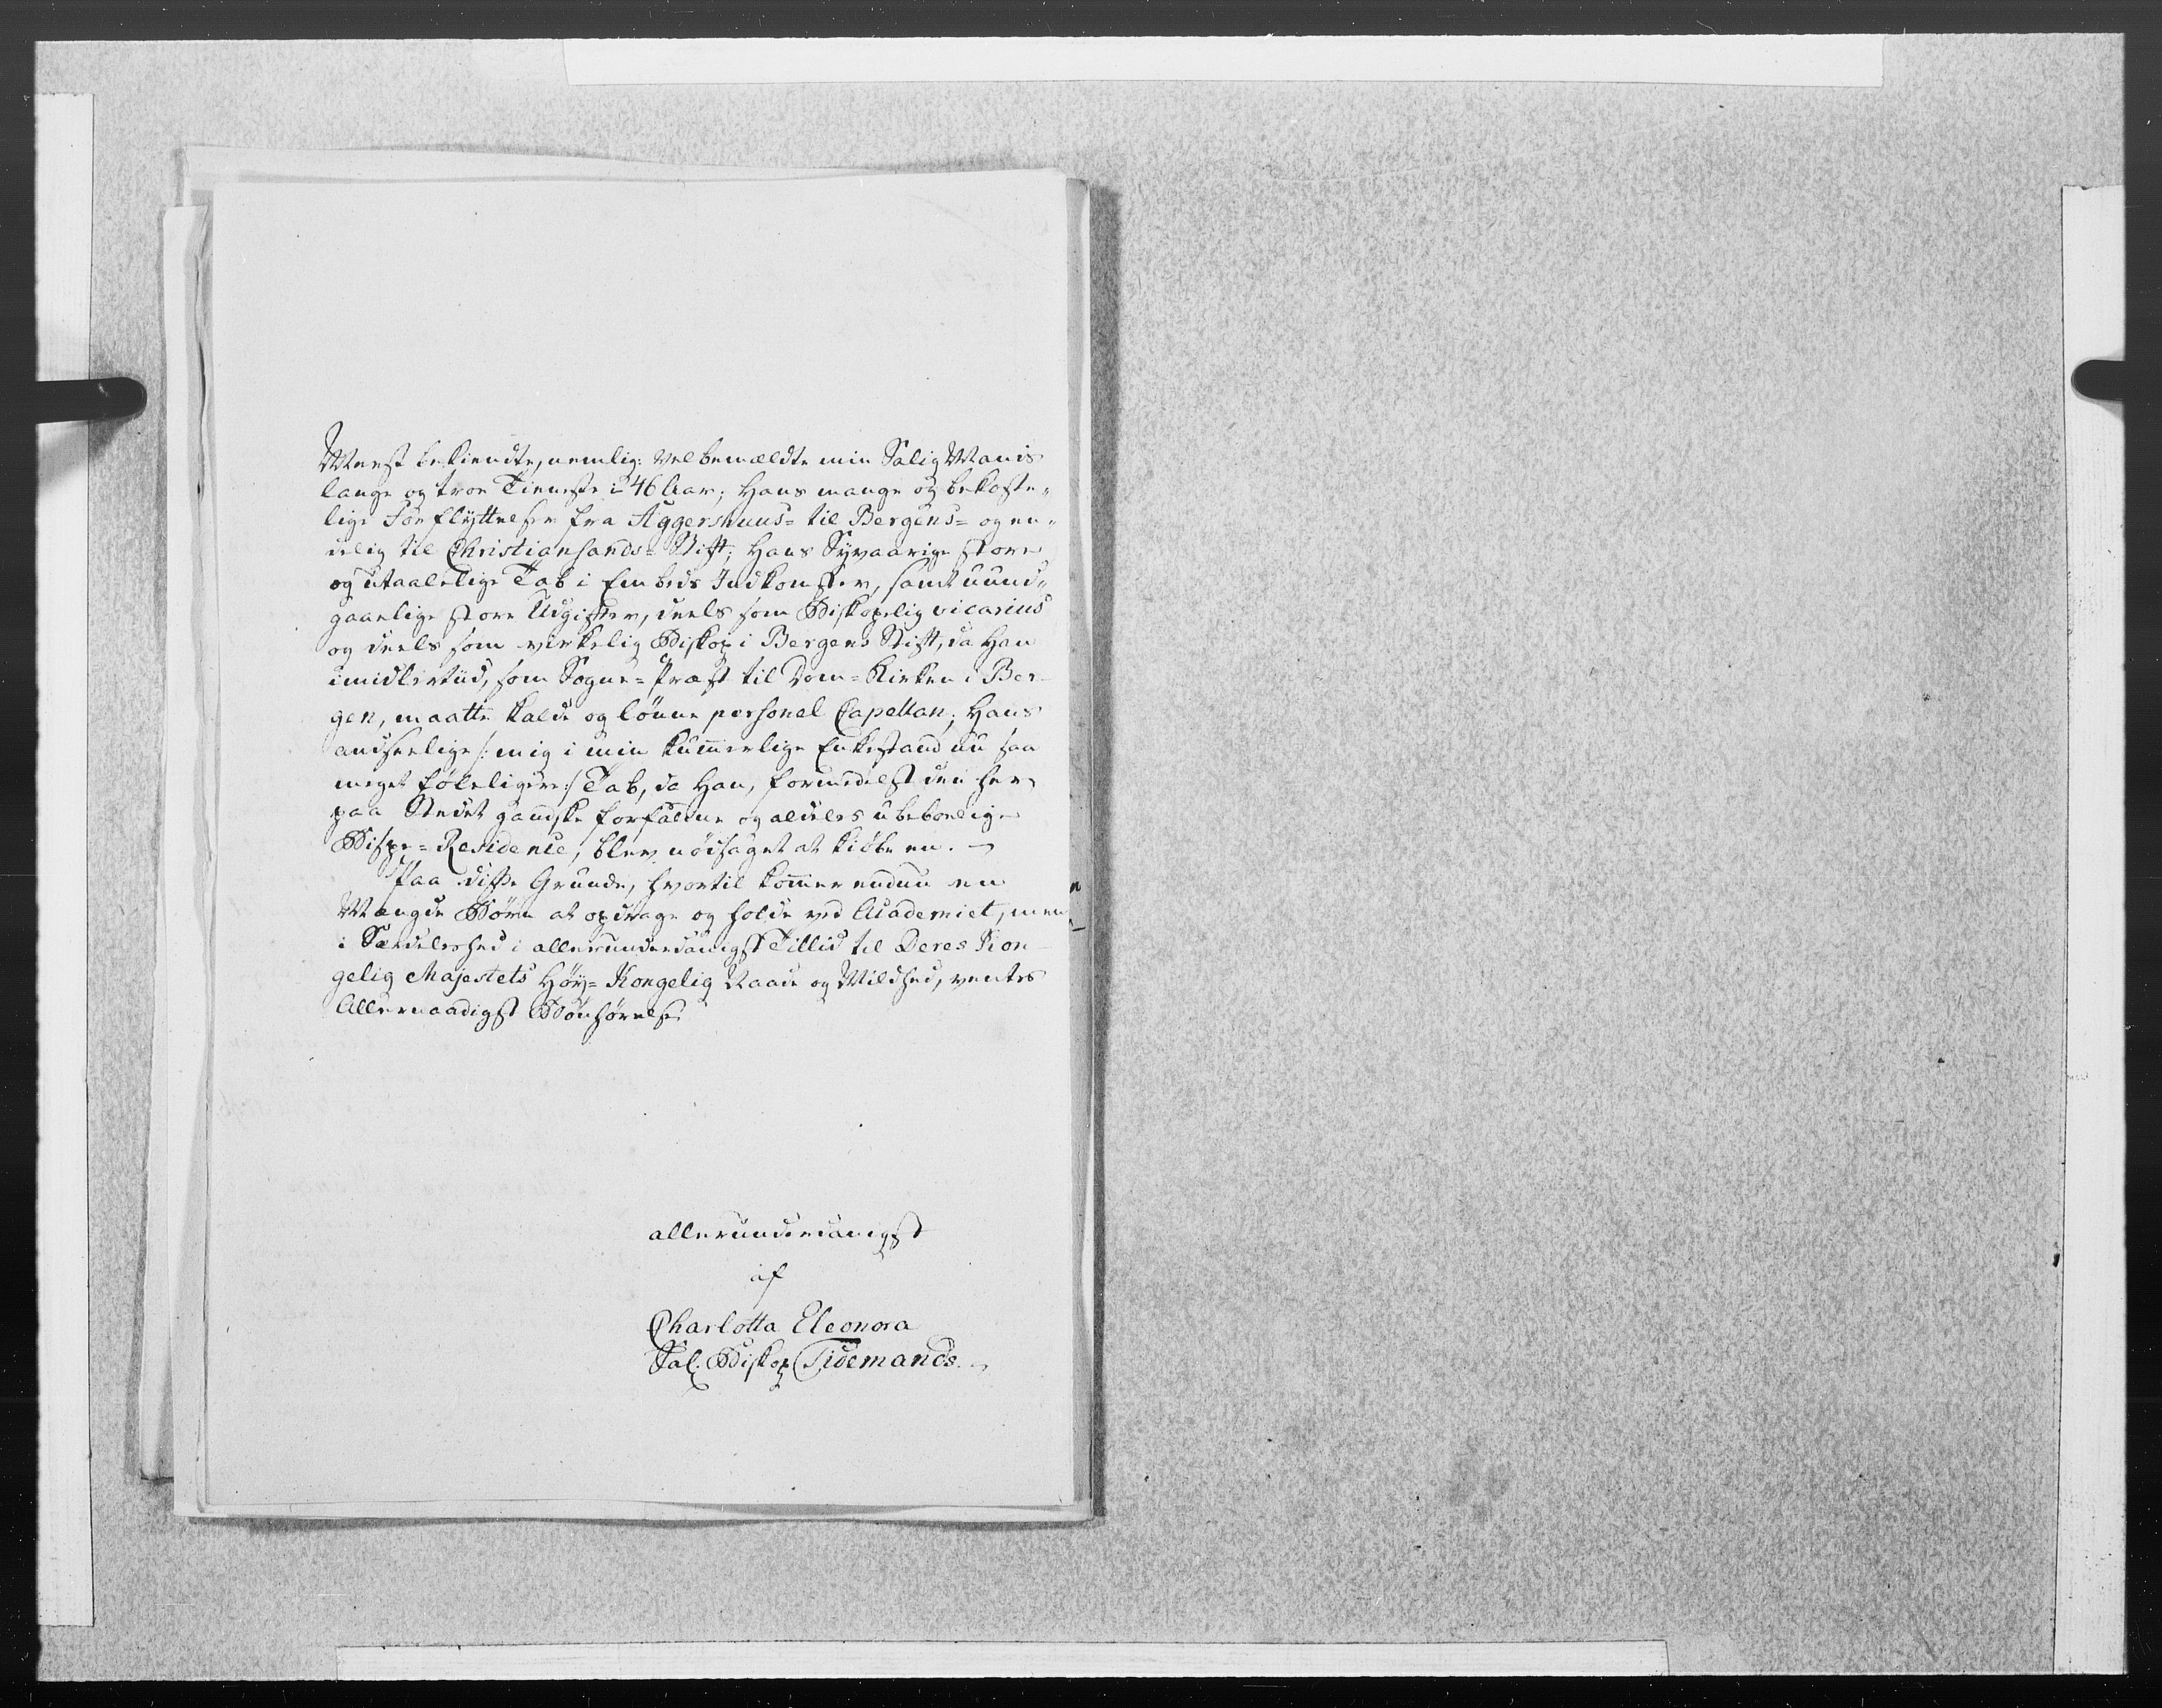 Meest bekiendte, nemlig: Velbemældte min Salig Mands
lange og troe Tieneste i 46 Aar; Hans mange og bekoste„
lige Forflyttelser fra Aggershuus= til Bergens= og en„
delig til Christiansands= Stift; Hans Syvaarige store
og utaalelige Tab i Embeds Indkomster, samt uund„
gaaelige store Udgifter, deels som Biskopelig vicarius
og deels som virkelig Biskop i Bergens Stift, da Han
imidlertiid, som Sogne=Præst til Dom=Kirken i Ber-
gen, maatte kalde og lønne personel Capellan; Hans
andseelige /: mig i min kummerlige Enkestand nu saa
meget føleligere :/ Tab, da Han, formedelst den her
paa Stedet gandske forfaldne og aldeles ubeboelige
Bispe=Residence, blev nødsaget at kiøbe en. —
Paa disse Grunde, hvortil kommer endnu en
Mængde Børn at opdrage og holde ved Academiet, men
i Særdeleshed i allerunderdanigst Tillid til Deres Kon-
gelig Majestets Høy=Kongelig Naade og Mildhed, ventes
Allernaadigst Bønhørelse
allerunderdanigst
af
Charlotta Eleonora
Sal. Biskop Tidemands.